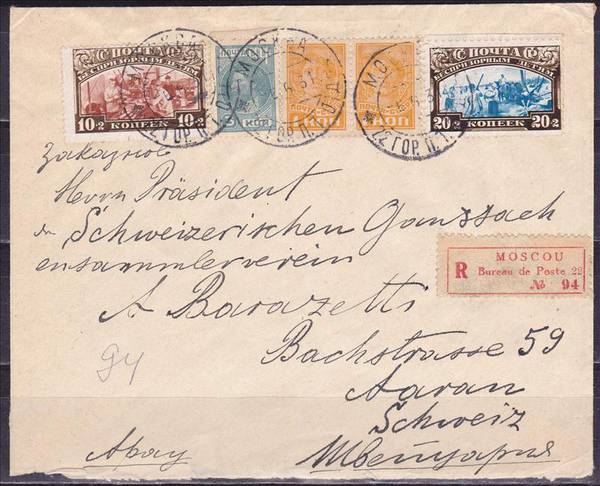 ПОЧТА
БЕСПРИЗОРНЫМ ДЕТЯМ
10+2 КОПЕЕК 10+2
КОП
МОСКВА
КОП
МОСКВА
ПОЧТА
БЕСПРИЗОРНЫМ ДЕТЯМ
20+2 КОПЕЕК 20+2
22 ГОР. П.
Заказное
Herrn Präsident
der Schweizerischen Ganzsach
ensammlerverein
A Barazetti
Bachstrasse 59
Aarau
Schweiz
Арау
Швейцария
94
MOSCOU
R Bureau de Poste 22
№ 94